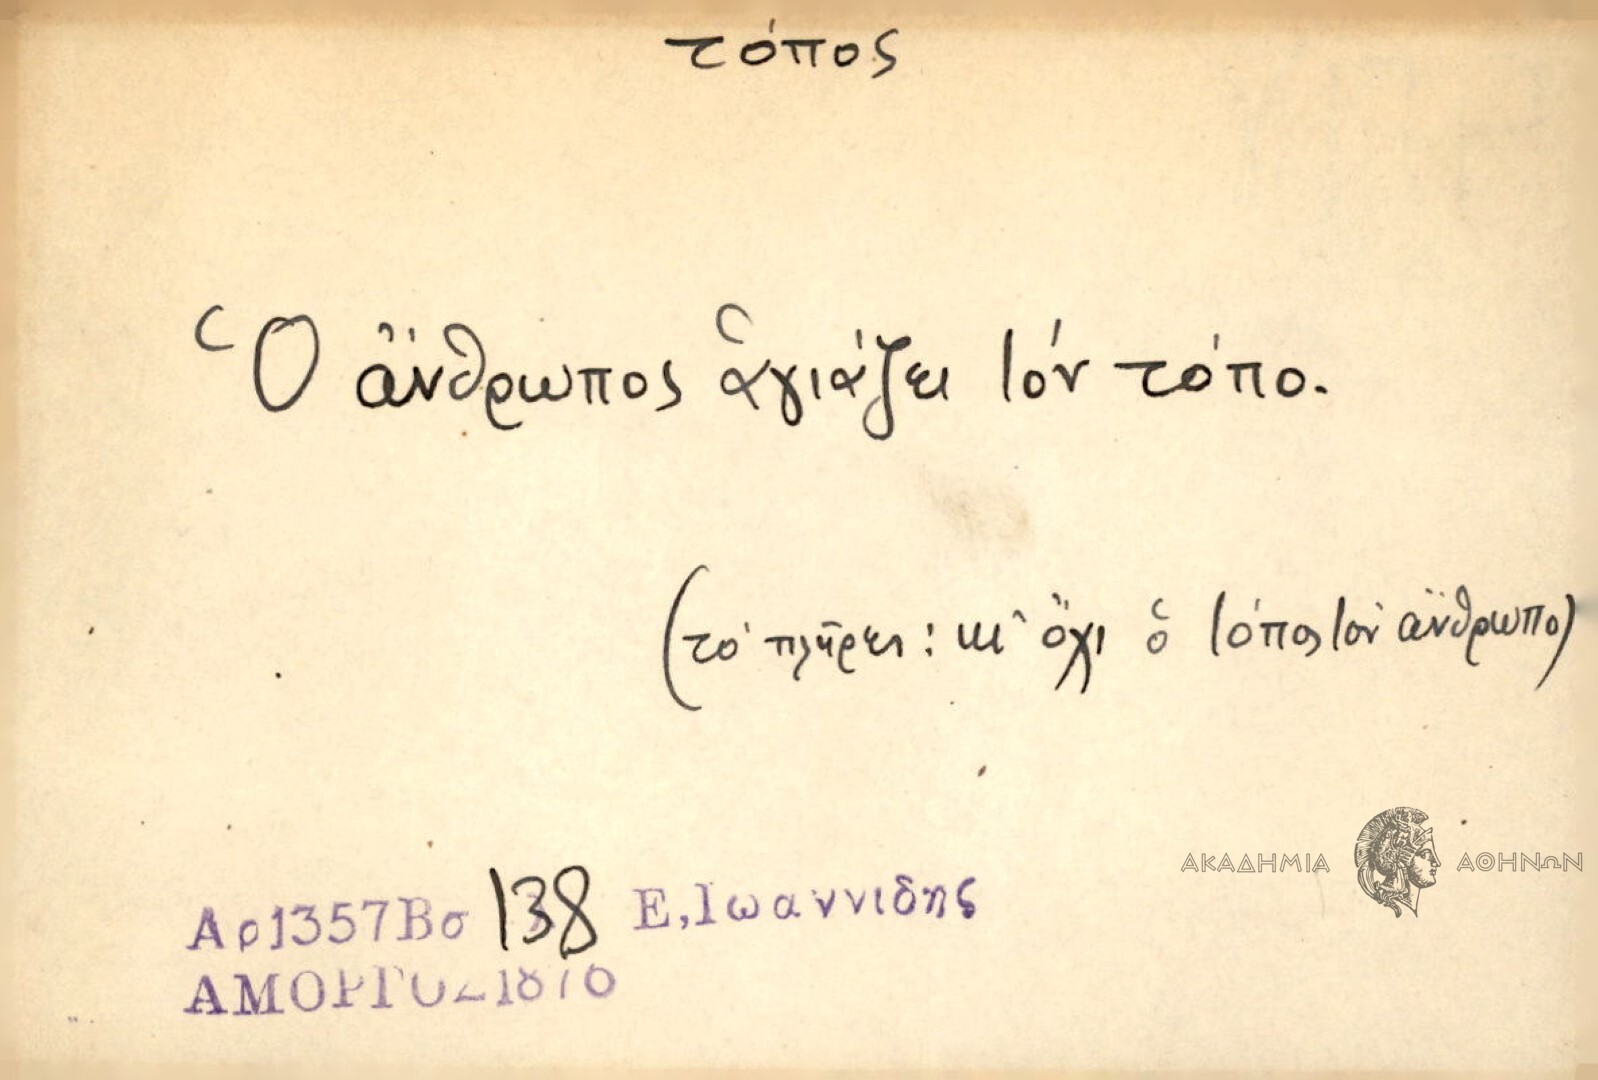 τόπος
Ὁ ἄνθρωπος ἁγιάζει τόν τόπο.
(τό πλῆρες: κι' ὄχι ὁ τόπος τόν ἄνθρωπο)
ΑΚΑΔΗΜΙΑ ΑΘΗΝΩΝ
Αρ1357Βσ 138 Ε,Ιωαννιδης
ΑΜΟΡΓΟΣ1876